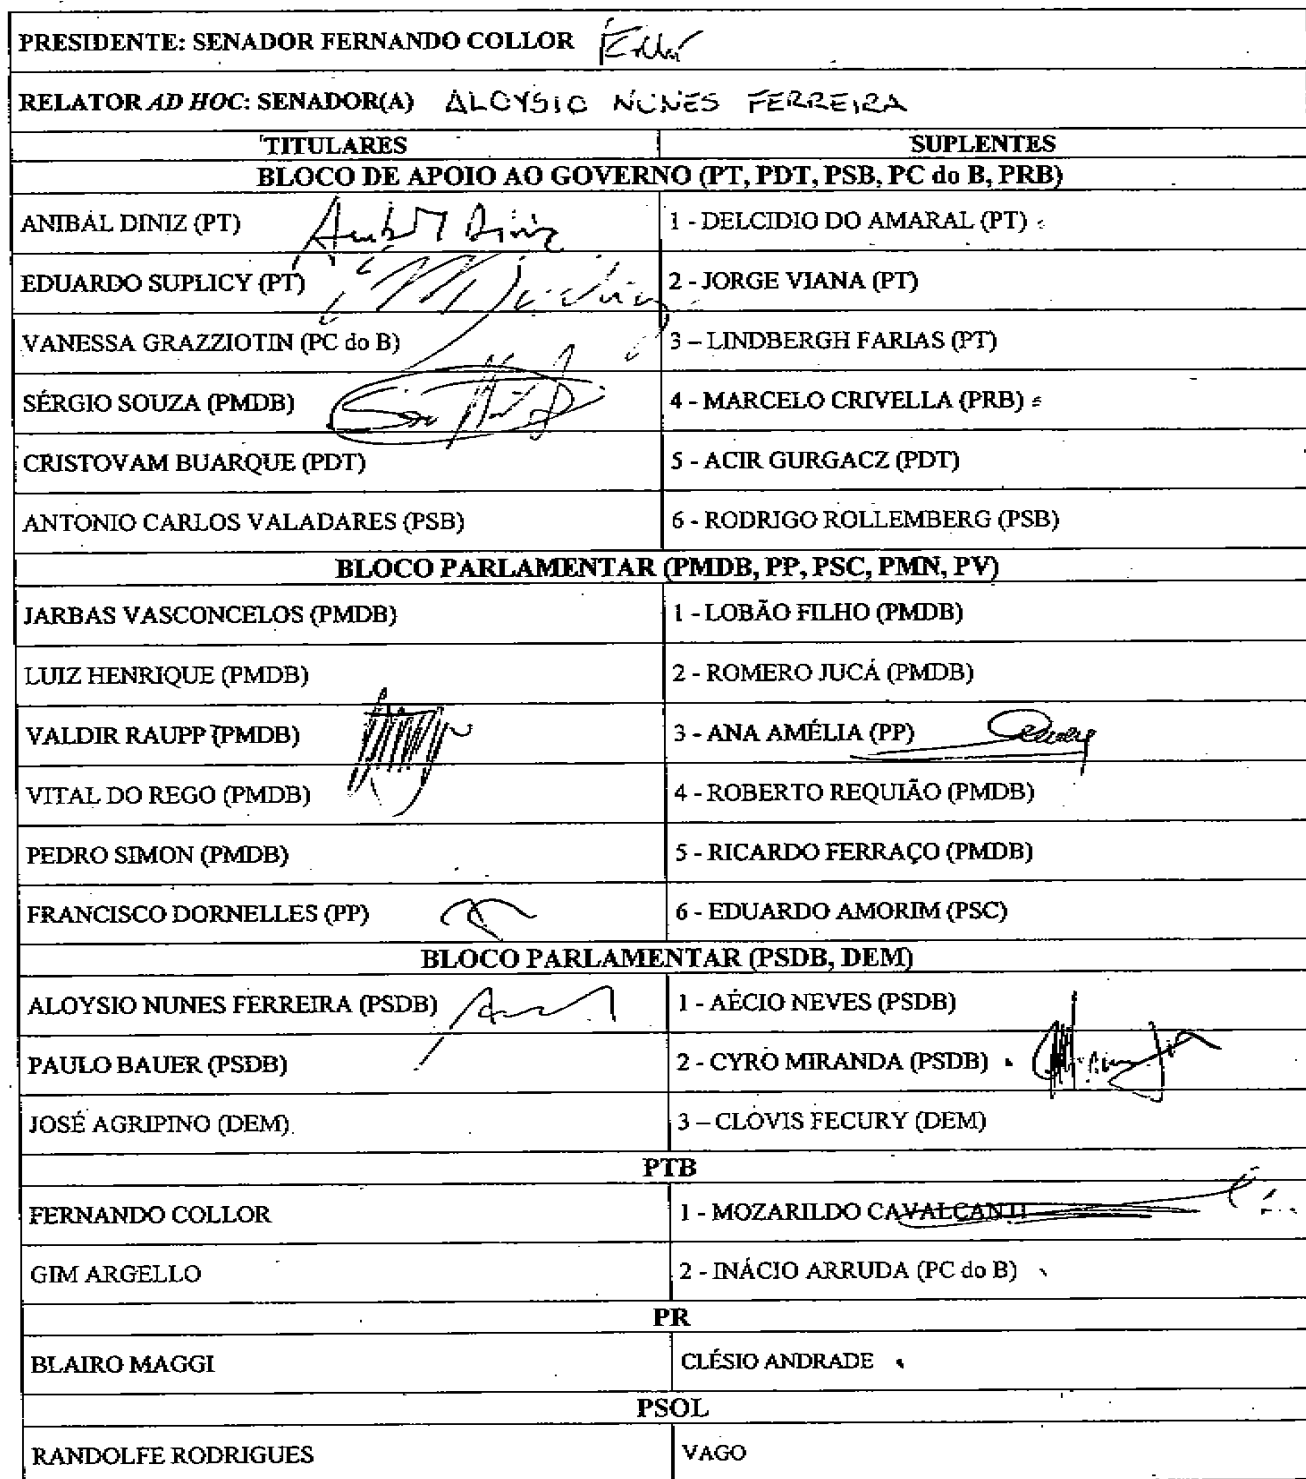 PRESIDENTE: SENADOR FERNANDO COLLOR
RELATOR AD HOC: SENADOR(A) ALOYSIO NUNES FERREIRA
TITULARES SUPLENTES
BLOCO DE APOIO AO GOVERNO (PT, PDT, PSB, PC do B, PRB)
ANIBAL DINIZ (PT) Anibal Diniz 1 - DELCIDIO DO AMARAL (PT)
EDUARDO SUPLICY (PT) 2 - JORGE VIANA (PT)
VANESSA GRAZZIOTIN (PC do B) 3 – LINDBERGH FARIAS (PT)
SÉRGIO SOUZA (PMDB) 4 - MARCELO CRIVELLA (PRB)
CRISTOVAM BUARQUE (PDT) 5 - ACIR GURGACZ (PDT)
ANTONIO CARLOS VALADARES (PSB) 6 - RODRIGO ROLLEMBERG (PSB)
BLOCO PARLAMENTAR (PMDB, PP, PSC, PMN, PV)
JARBAS VASCONCELOS (PMDB) 1 - LOBÃO FILHO (PMDB)
LUIZ HENRIQUE (PMDB) 2 - ROMERO JUCÁ (PMDB)
VALDIR RAUPP (PMDB) 3 - ANA AMÉLIA (PP)
VITAL DO REGO (PMDB) 4 - ROBERTO REQUIÃO (PMDB)
PEDRO SIMON (PMDB) 5 - RICARDO FERRAÇO (PMDB)
FRANCISCO DORNELLES (PP) 6 - EDUARDO AMORIM (PSC)
BLOCO PARLAMENTAR (PSDB, DEM)
ALOYSIO NUNES FERREIRA (PSDB) 1 - AÉCIO NEVES (PSDB)
PAULO BAUER (PSDB) 2 - CYRO MIRANDA (PSDB)
JOSÉ AGRIPINO (DEM) 3 – CLÓVIS FECURY (DEM)
PTB
FERNANDO COLLOR 1 - MOZARILDO CAVALCANTI
GIM ARGELLO 2 - INÁCIO ARRUDA (PC do B)
PR
BLAIRO MAGGI CLÉSIO ANDRADE
PSOL
RANDOLFE RODRIGUES VAGO